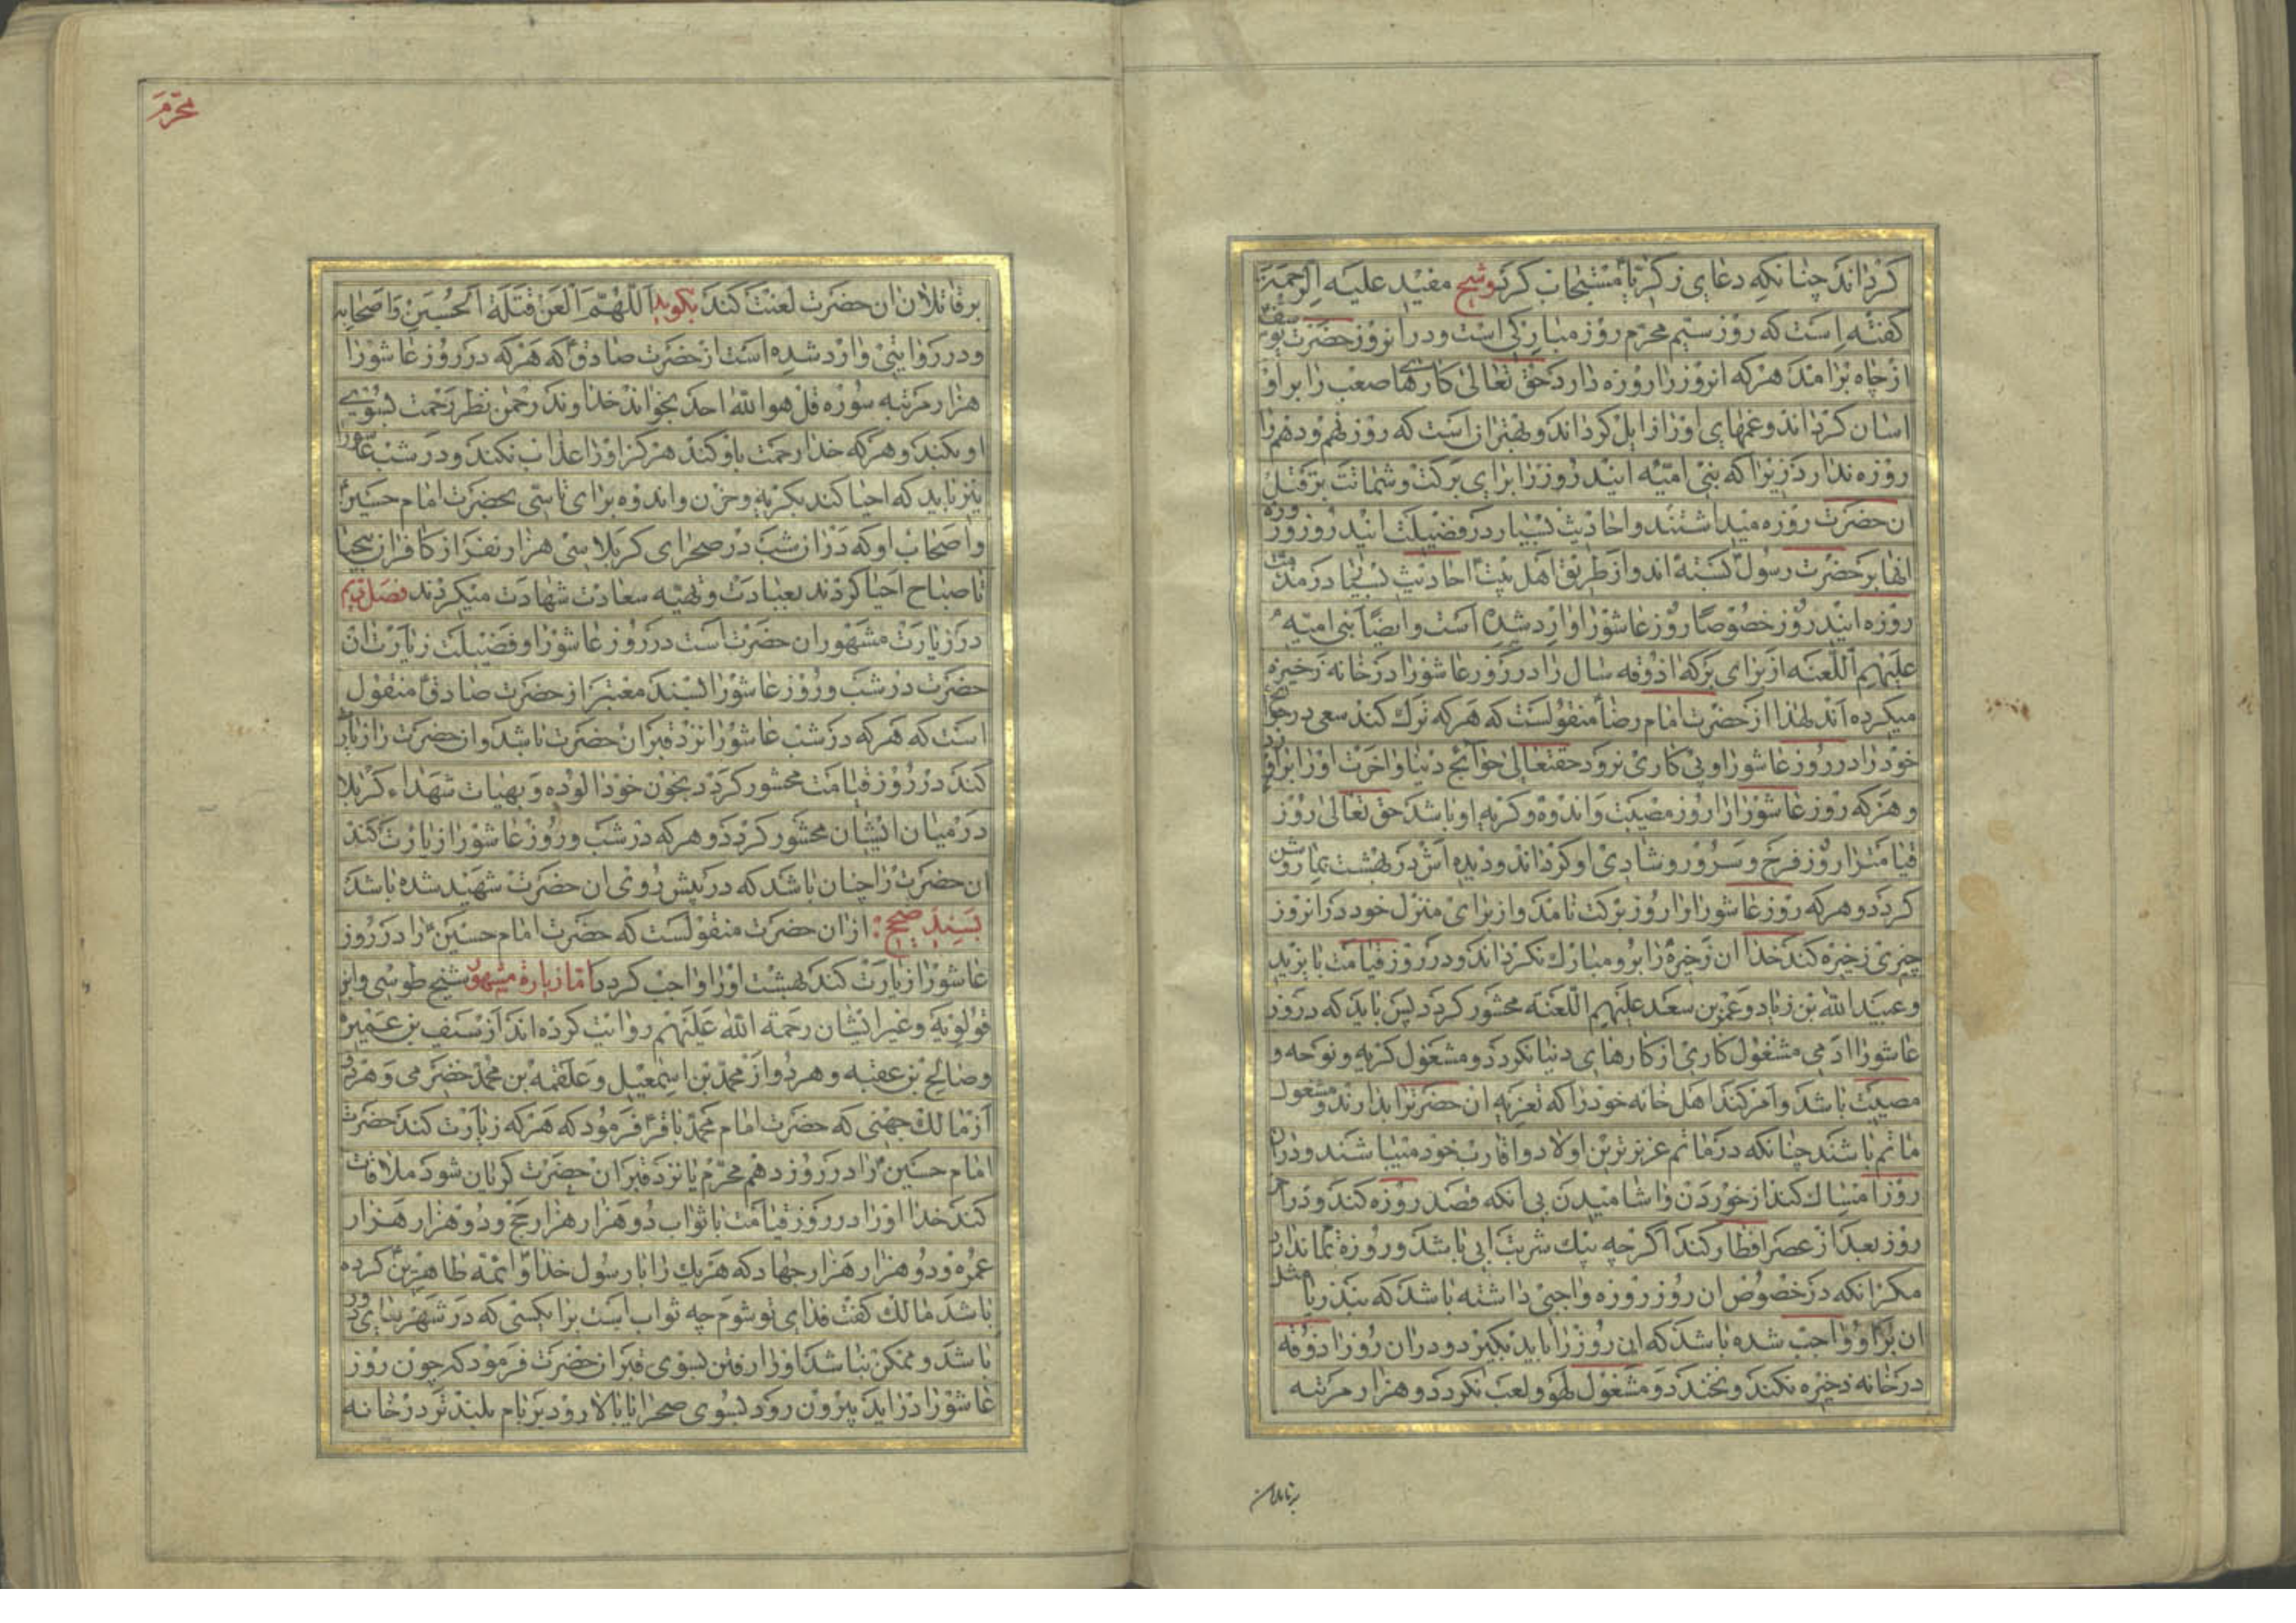 کرداند چنانکه دعای زکریا مستجاب کرد و شیخ مفید علیه الرحمة
کفته است که روز سیم محرم روز مبارکی است و در انروز حضرت یوسف
از چاه برامد هر که انروز را روزه دارد حق تعالی کارهای صعب را بر او
اسان کرداند و غمهای اورا زایل کرداند و بهتر انست که روز نهم و دهم را
روزه ندارد زیرا که بنی امیه ایندو روز را برای برکت و شماتت بر قتل
ان حضرت روزه میداشتند و احادیث بسیار در فضیلت ایندو روز و روزه
انها بر حضرت رسول بسته اند و از طریق اهل بیت احادیث بسیار در مذمت
روزه ایندو روز خصوصا روز عاشورا وارد شده است و ایضا بنی امیه
علیهم اللعنه از برای برکه اذوقه سال را در روز عاشورا در خانه زخیره
میکرده اند لهذا از حضرت امام رضا منقولست که هر که ترک کند سعی در حوایج
خود را در روز عاشورا و پی کاری نرود حقتعالی حوائج دنیا و اخرت اورا براورد
و هر که روز عاشورا را روز مصیبت و اندوه و کریه او باشد حق تعالی روز
قیامت را روز فرح و سرور و شادی او کرداند و دیده اش در بهشت بما روشن
کردد و هر که روز عاشورا را روز برکت نامد و از برای منزل خود در انروز
چیزی زخیره کند خدا ان زخیره را برو مبارک نکرداند و در روز قیامت با یزید
و عبید الله بن زیاد و عمر بن سعد علیهم اللعنه محشور کردد پس باید که در روز
عاشورا ادمی مشغول کاری از کارهای دنیا نکردد و مشغول کریه و نوحه و
مصیبت باشد و امر کند اهل خانه خود را که تعزیه ان حضرترا بدارند و مشغول
ماتم باشند چنانکه در ماتم عزیزترین اولاد و اقارب خود میباشند و دران
روز امساک کند از خوردن و اشامیدن بی انکه قصد روزه کند و در اخر
روز بعد از عصر افطار کند اکرچه بیک شربت ابی باشد و روزه تمام ندارد
مکر انکه در خصوص ان روز روزه واجبی داشته باشد که بنذر یا مثل
ان بر او واجب شده باشد که این روز را باید بکیرد و در ان روز اذوقه
در خانه ذخیره نکند و نخندد و مشغول لهو و لعب نکردد و هزار مرتبه
بر قاتلان
محرم
بر قاتلان ان حضرت لعنت کند بکوید اللهم العن قتلة الحسین و اصحابه
و در روایتی وارد شده است از حضرت صادق که هر که در روز عاشورا
هزار مرتبه سوره قل هو الله احد بخواند خداوند رحمن نظر رحمت بسوی
او بکند و هر که خدا رحمت باو کند هرکز اورا عذاب نکند و در شب عاشورا
نیز باید که احیا کند بکریه و حزن و اندوه برای تاسی بحضرت امام حسین
و اصحاب او که در ان شب در صحرای کربلا سی هزار نفر از کافران بیحیا
تا صباح احیا کردند بعبادت و تهیه سعادت شهادت میکردند فصل نهم
در زیارت مشهور ان حضرت است در روز عاشورا و فضیلت زیارت ان
حضرت در شب و روز عاشورا بسند معتبر از حضرت صادق منقول
است که هر که در شب عاشورا نزد قبر ان حضرت باشد و ان حضرت را زیارت
کند در روز قیامت محشور کردد بخون خود الوده و بهیات شهداء کربلا
در میان ایشان محشور کردد و هر که در شب و روز عاشورا زیارت کند
ان حضرت را چنان باشد که در پیش روی ان حضرت شهید شده باشد
بسند صحیح از ان حضرت منقولست که حضرت امام حسین را در روز
عاشورا زیارت کند بهشت اورا واجب کردد اما زیارة مشهور شیخ طوسی و ابن
قولویه و غیر ایشان رحمة الله علیهم روایت کرده اند از سیف بن عمیره
و صالح بن عقبه و هر دو از محمد بن اسمعیل و علقمه بن محمد حضرمی و هر دو
از مالک جهنی که حضرت امام محمد باقر فرمود که هر که زیارت کند حضرت
امام حسین را در روز دهم محرم یا نزد قبر ان حضرت کریان شود ملاقات
کند خدا اورا در روز قیامت با ثواب دو هزار هزار حج و دو هزار هزار
عمره و دو هزار هزار جهاد که هریک را با رسول خدا و ائمه طاهرین کرده
باشد مالک کفت فدای تو شوم چه ثواب است برا یکسی که در شهرهای دور
باشد و ممکن نباشد اورا رفتن بسوی قبر انحضرت فرمود که چون روز
عاشورا در اید بیرون رود بسوی صحرا یا بالا رود بر بام بلندتر در خانه